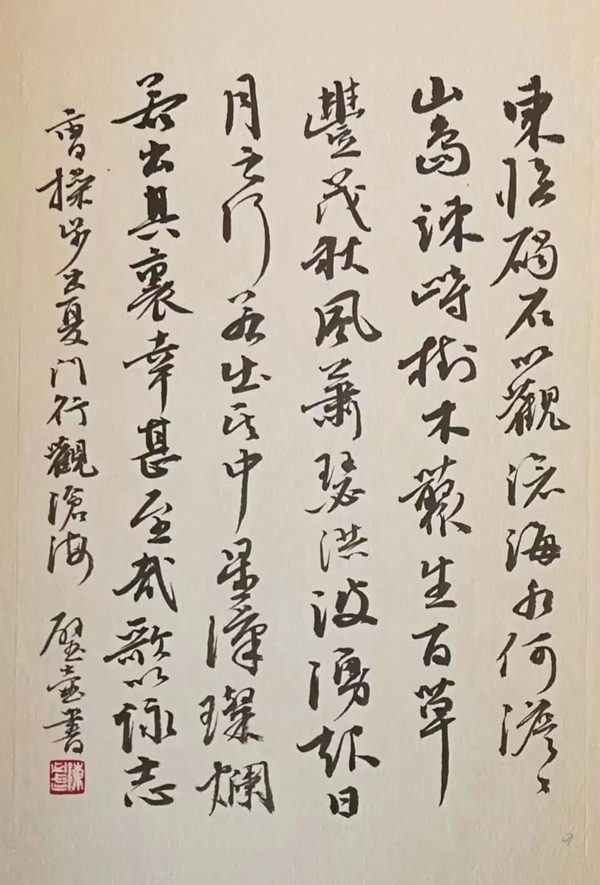 東臨碣石以觀滄海水何澹々
山島竦峙樹木叢生百草
豐茂秋風蕭瑟洪波湧起日
月之行若出其中星漢璨爛
若出其裏幸甚至哉歌以詠志
曹操步出夏門行觀滄海 壺書